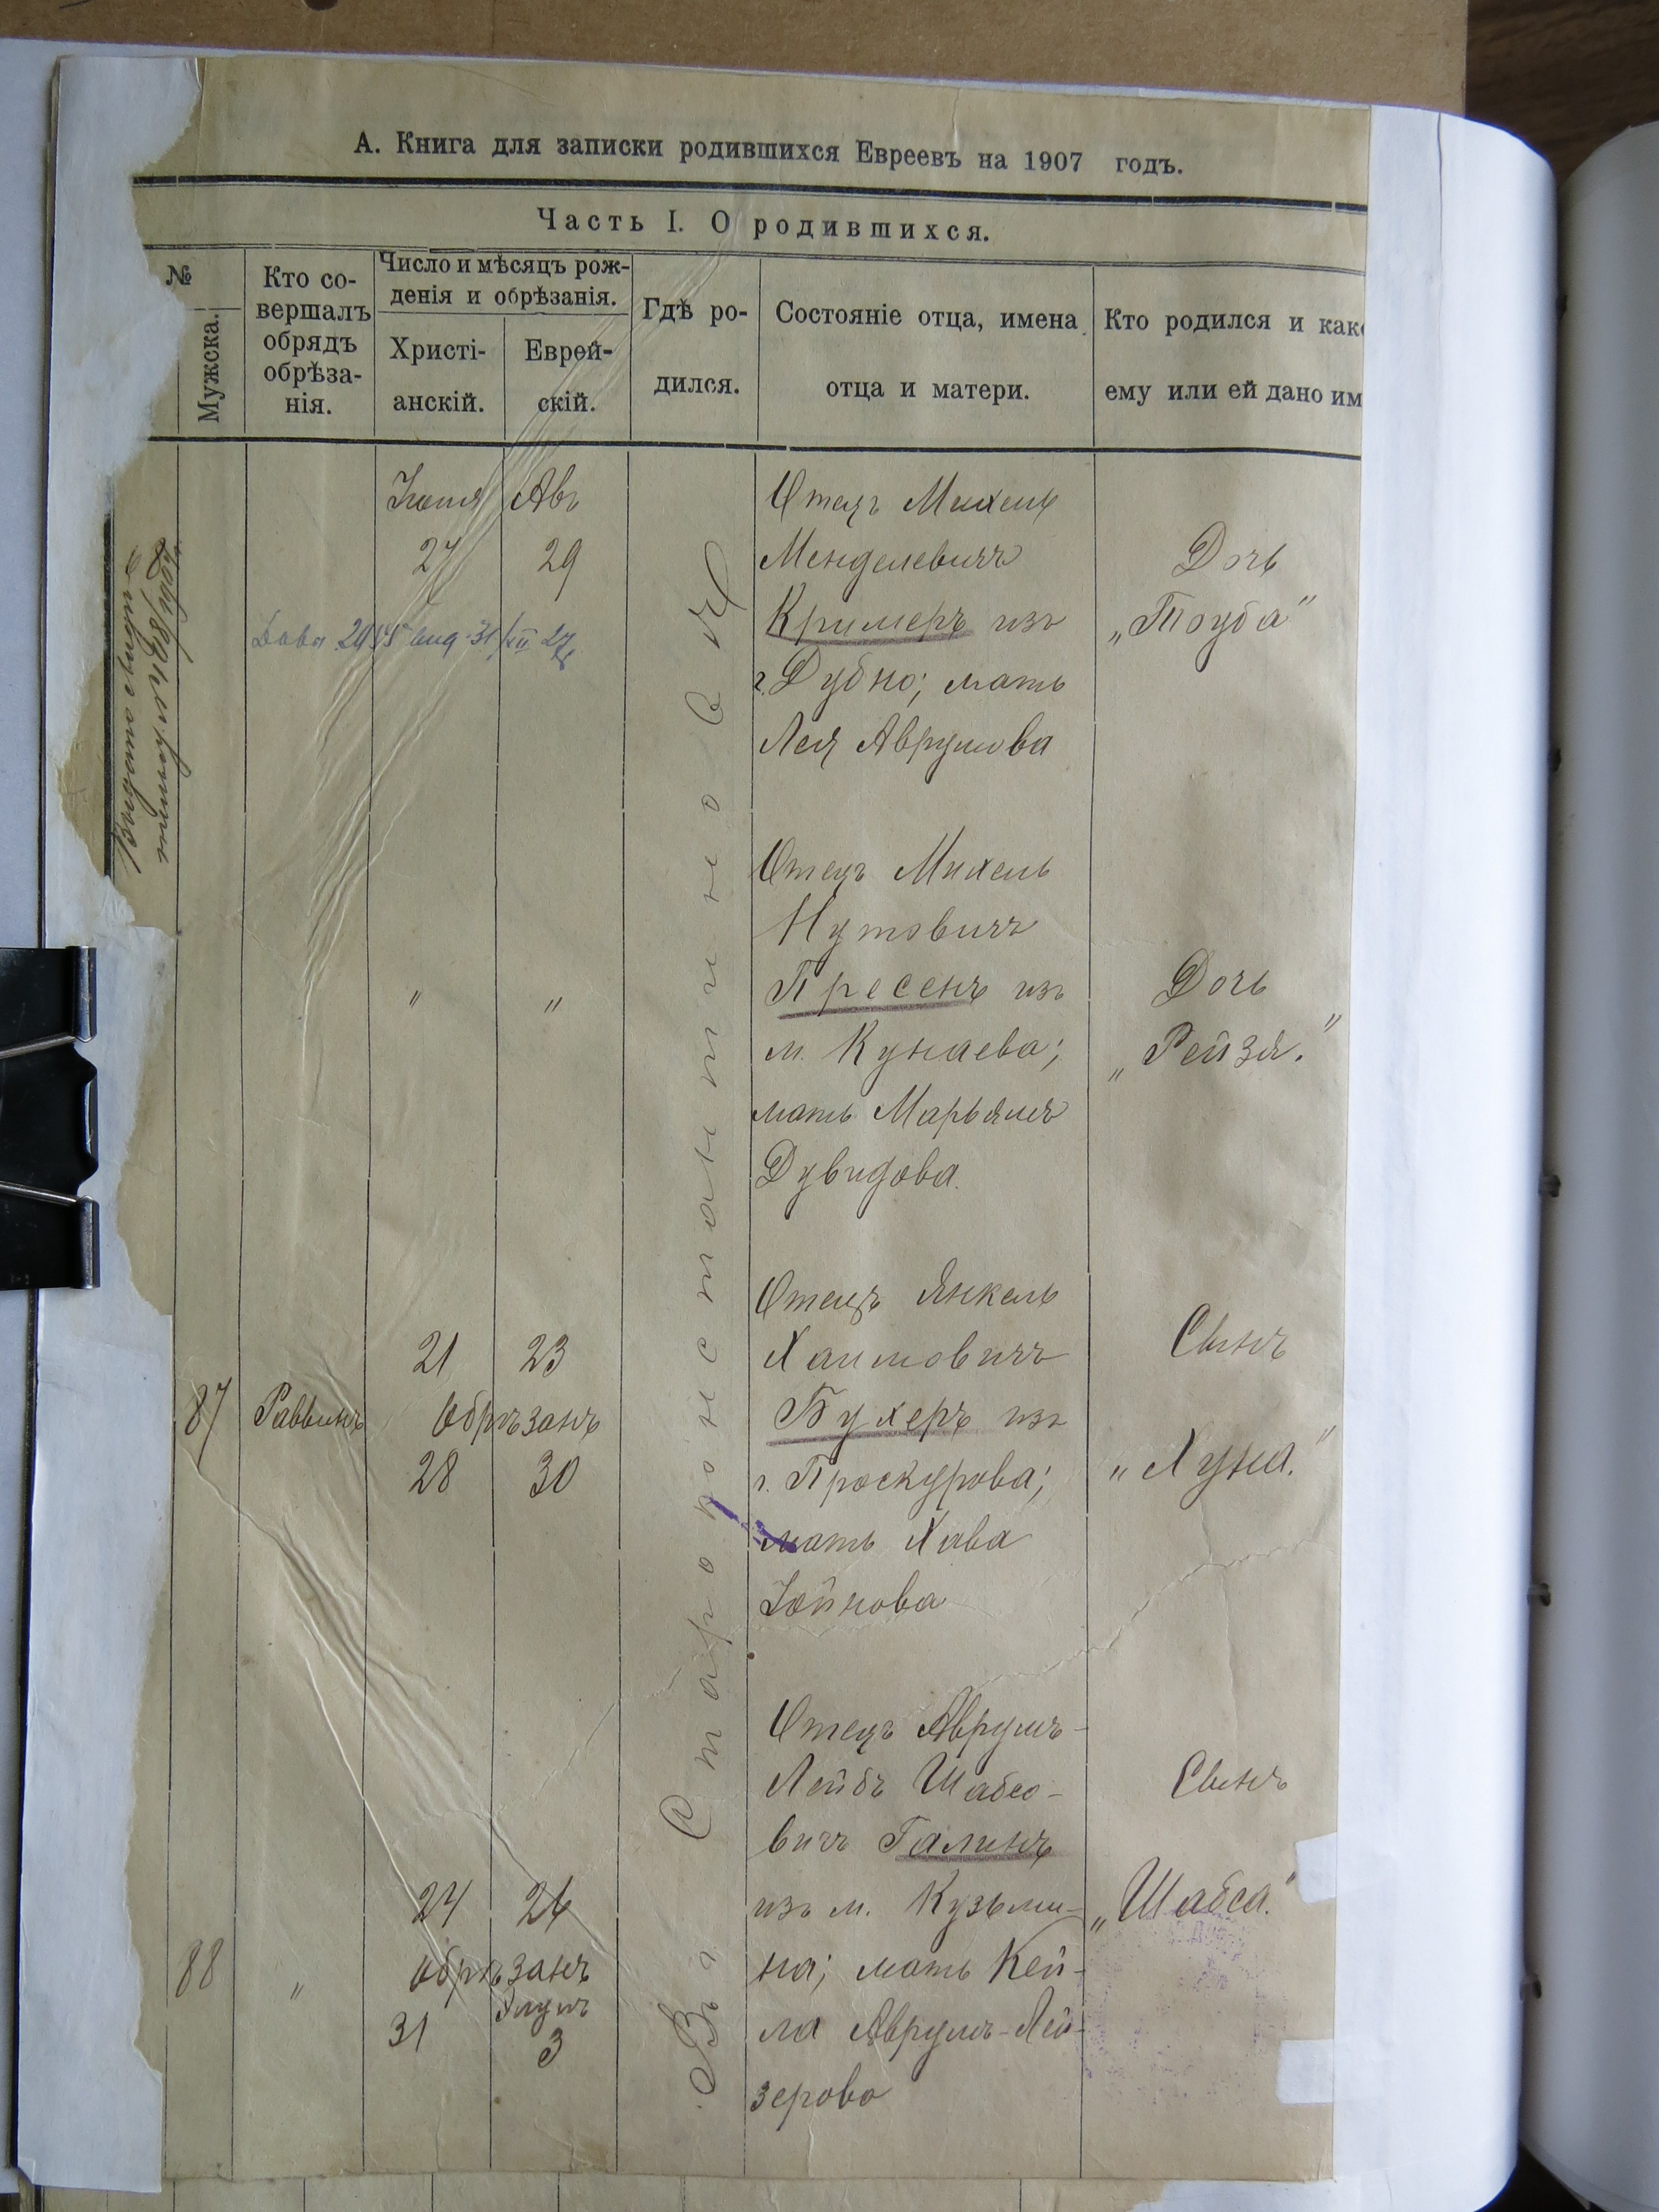 А. Книга для записки родившихся Евреевъ на 1907 годъ.
Часть I. О родившихся.
№
Мужска.
Кто со-
вершалъ
обрядъ
обрѣза-
нія.
Число и мѣсяцъ рож-
денія и обрѣзанія.
Христі-
анскій.
Еврей-
скій.
Гдѣ ро-
дился.
Состояніе отца, имена
отца и матери.
Кто родился и како
ему или ей дано им
Въ г. Староконстантиновѣ
Іюля
Авъ
27
29
Отецъ Михель
Менделевичъ
Кримеръ изъ
г. Дубно; мать
Лея Аврумова
Дочь
„Тоуба"
„
„
Отецъ Михель
Нутовичъ
Пресенъ изъ
м. Кунаева;
мать Марьямъ
Дувидова.
Дочь
„Рейзя."
87
Раввинъ
21
23
Обрѣзанъ
28
30
Отецъ Янкель
Хаимовичъ
Бухеръ изъ
г. Проскурова;
мать Хава
Іойнова
Сынъ
„Хуна."
88
„
24
26
Обрѣзанъ
31
Элулъ
3
Отецъ Аврумъ-
Лейбъ Шабсо-
вичъ Галинъ
изъ м. Кузьми-
на; мать Кей-
ла Аврумъ-Лей-
зерова
Сынъ
„Шабса."